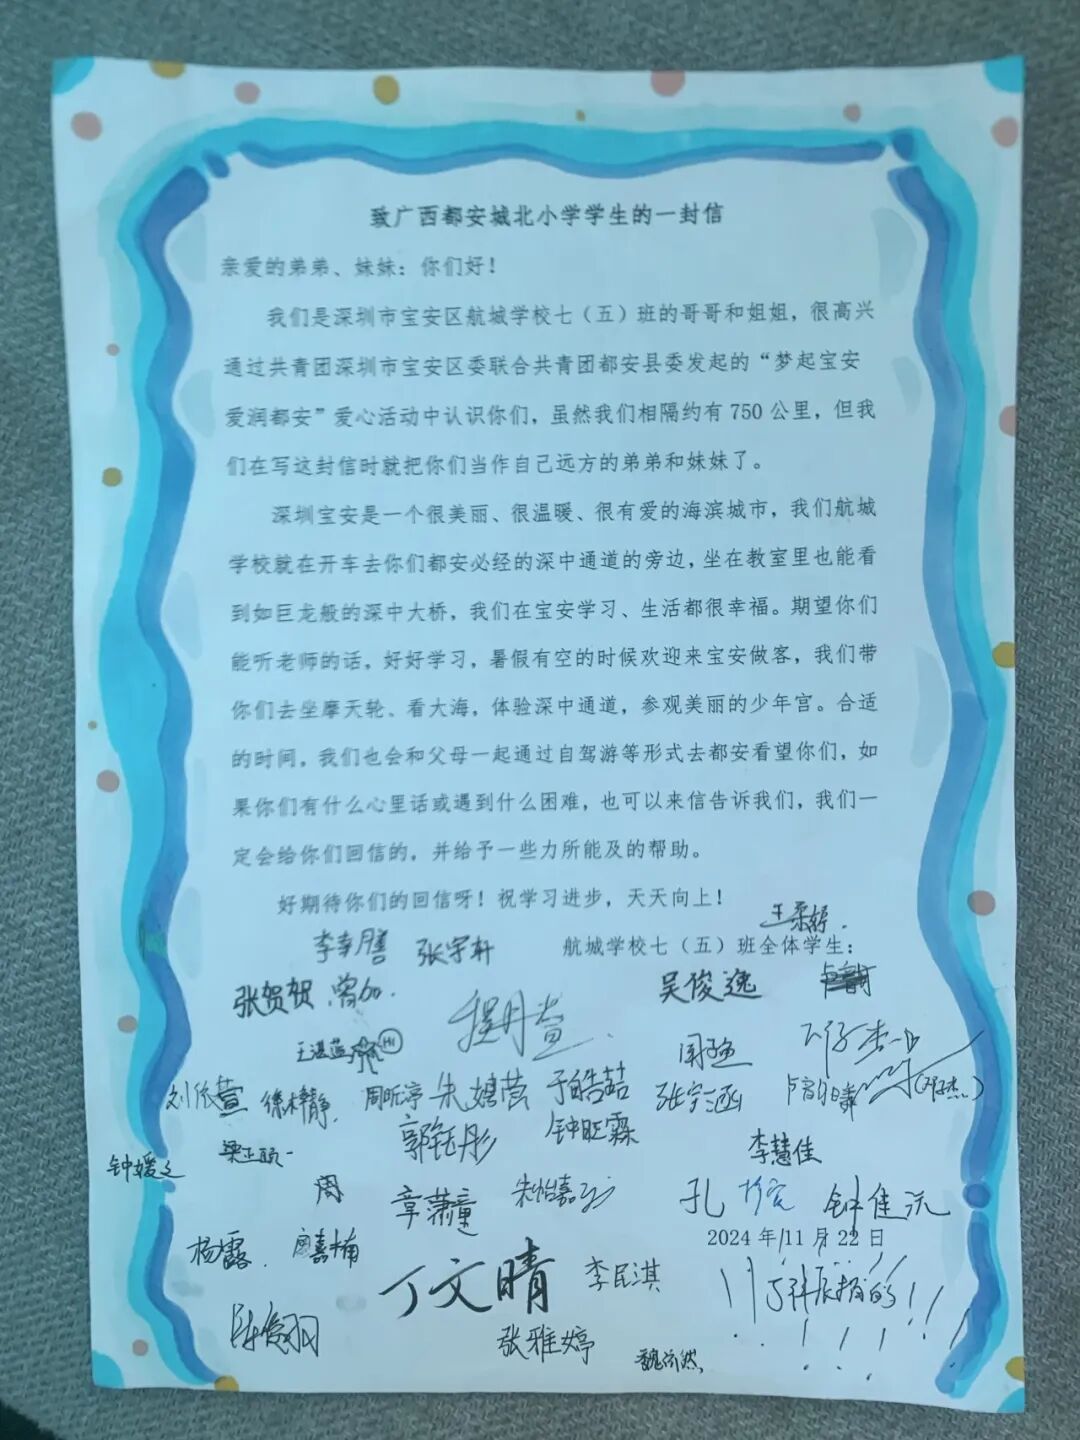 致广西都安城北小学学生的一封信
亲爱的弟弟、妹妹：你们好！
我们是深圳市宝安区航城学校七（五）班的哥哥和姐姐，很高兴
通过共青团深圳市宝安区委联合共青团都安县委发起的“梦起宝安
爱润都安”爱心活动中认识你们，虽然我们相隔约有 750 公里，但我
们在写这封信时就把你们当作自己远方的弟弟和妹妹了。
深圳宝安是一个很美丽、很温暖、很有爱的海滨城市，我们航城
学校就在开车去你们都安必经的深中通道的旁边，坐在教室里也能看
到如巨龙般的深中大桥，我们在宝安学习、生活都很幸福。期望你们
能听老师的话，好好学习，暑假有空的时候欢迎来宝安做客，我们带
你们去坐摩天轮、看大海，体验深中通道，参观美丽的少年宫。合适
的时间，我们也会和父母一起通过自驾游等形式去都安看望你们，如
果你们有什么心里话或遇到什么困难，也可以来信告诉我们，我们一
定会给你们回信的，并给予一些力所能及的帮助。
好期待你们的回信呀！祝学习进步，天天向上！
王柔婷.
航城学校七（五）班全体学生：
张宇轩
张贺贺 曾加.
吴俊逸
程丹萱
王湛蓝 HI
刘依萱
周昕渟 朱嫮营 于皓喆
张宇涵
郭钰彤
李慧佳
钟媛之
周
章潇童
朱怡嘉
孔 钟佳沅
2024 年 11 月 22 日
杨露.
廖嘉楠
丁文晴
李民淇
陈俊羽
张雅婷
魏依然